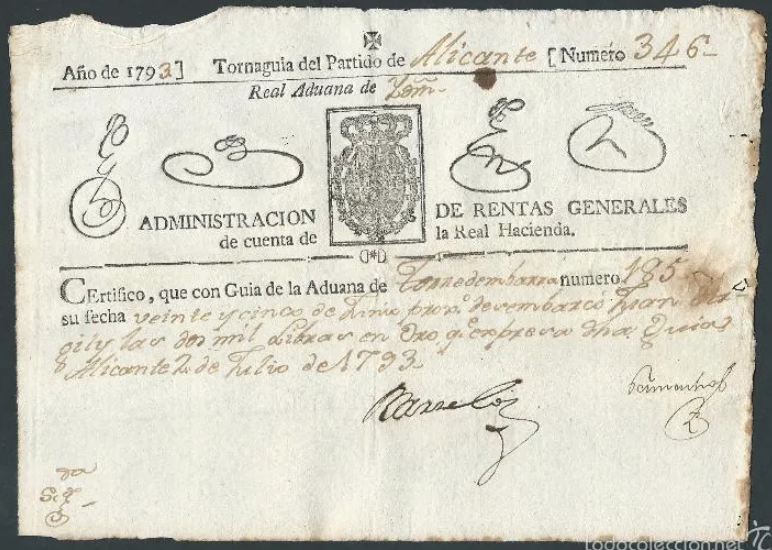 Año de 1793] Tornaguia del Partido de Alicante [Numero 346
Real Aduana de
ADMINISTRACION DE RENTAS GENERALES
de cuenta de la Real Hacienda.
CErtifico, que con Guia de la Aduana de Torredembarra numero 185
su fecha veinte y cinco de Junio desembarcó Juan
las dos mil Libras en Oro q.e expresa dha Guia
Alicante 2 de Julio de 1793
todocoleccion.net